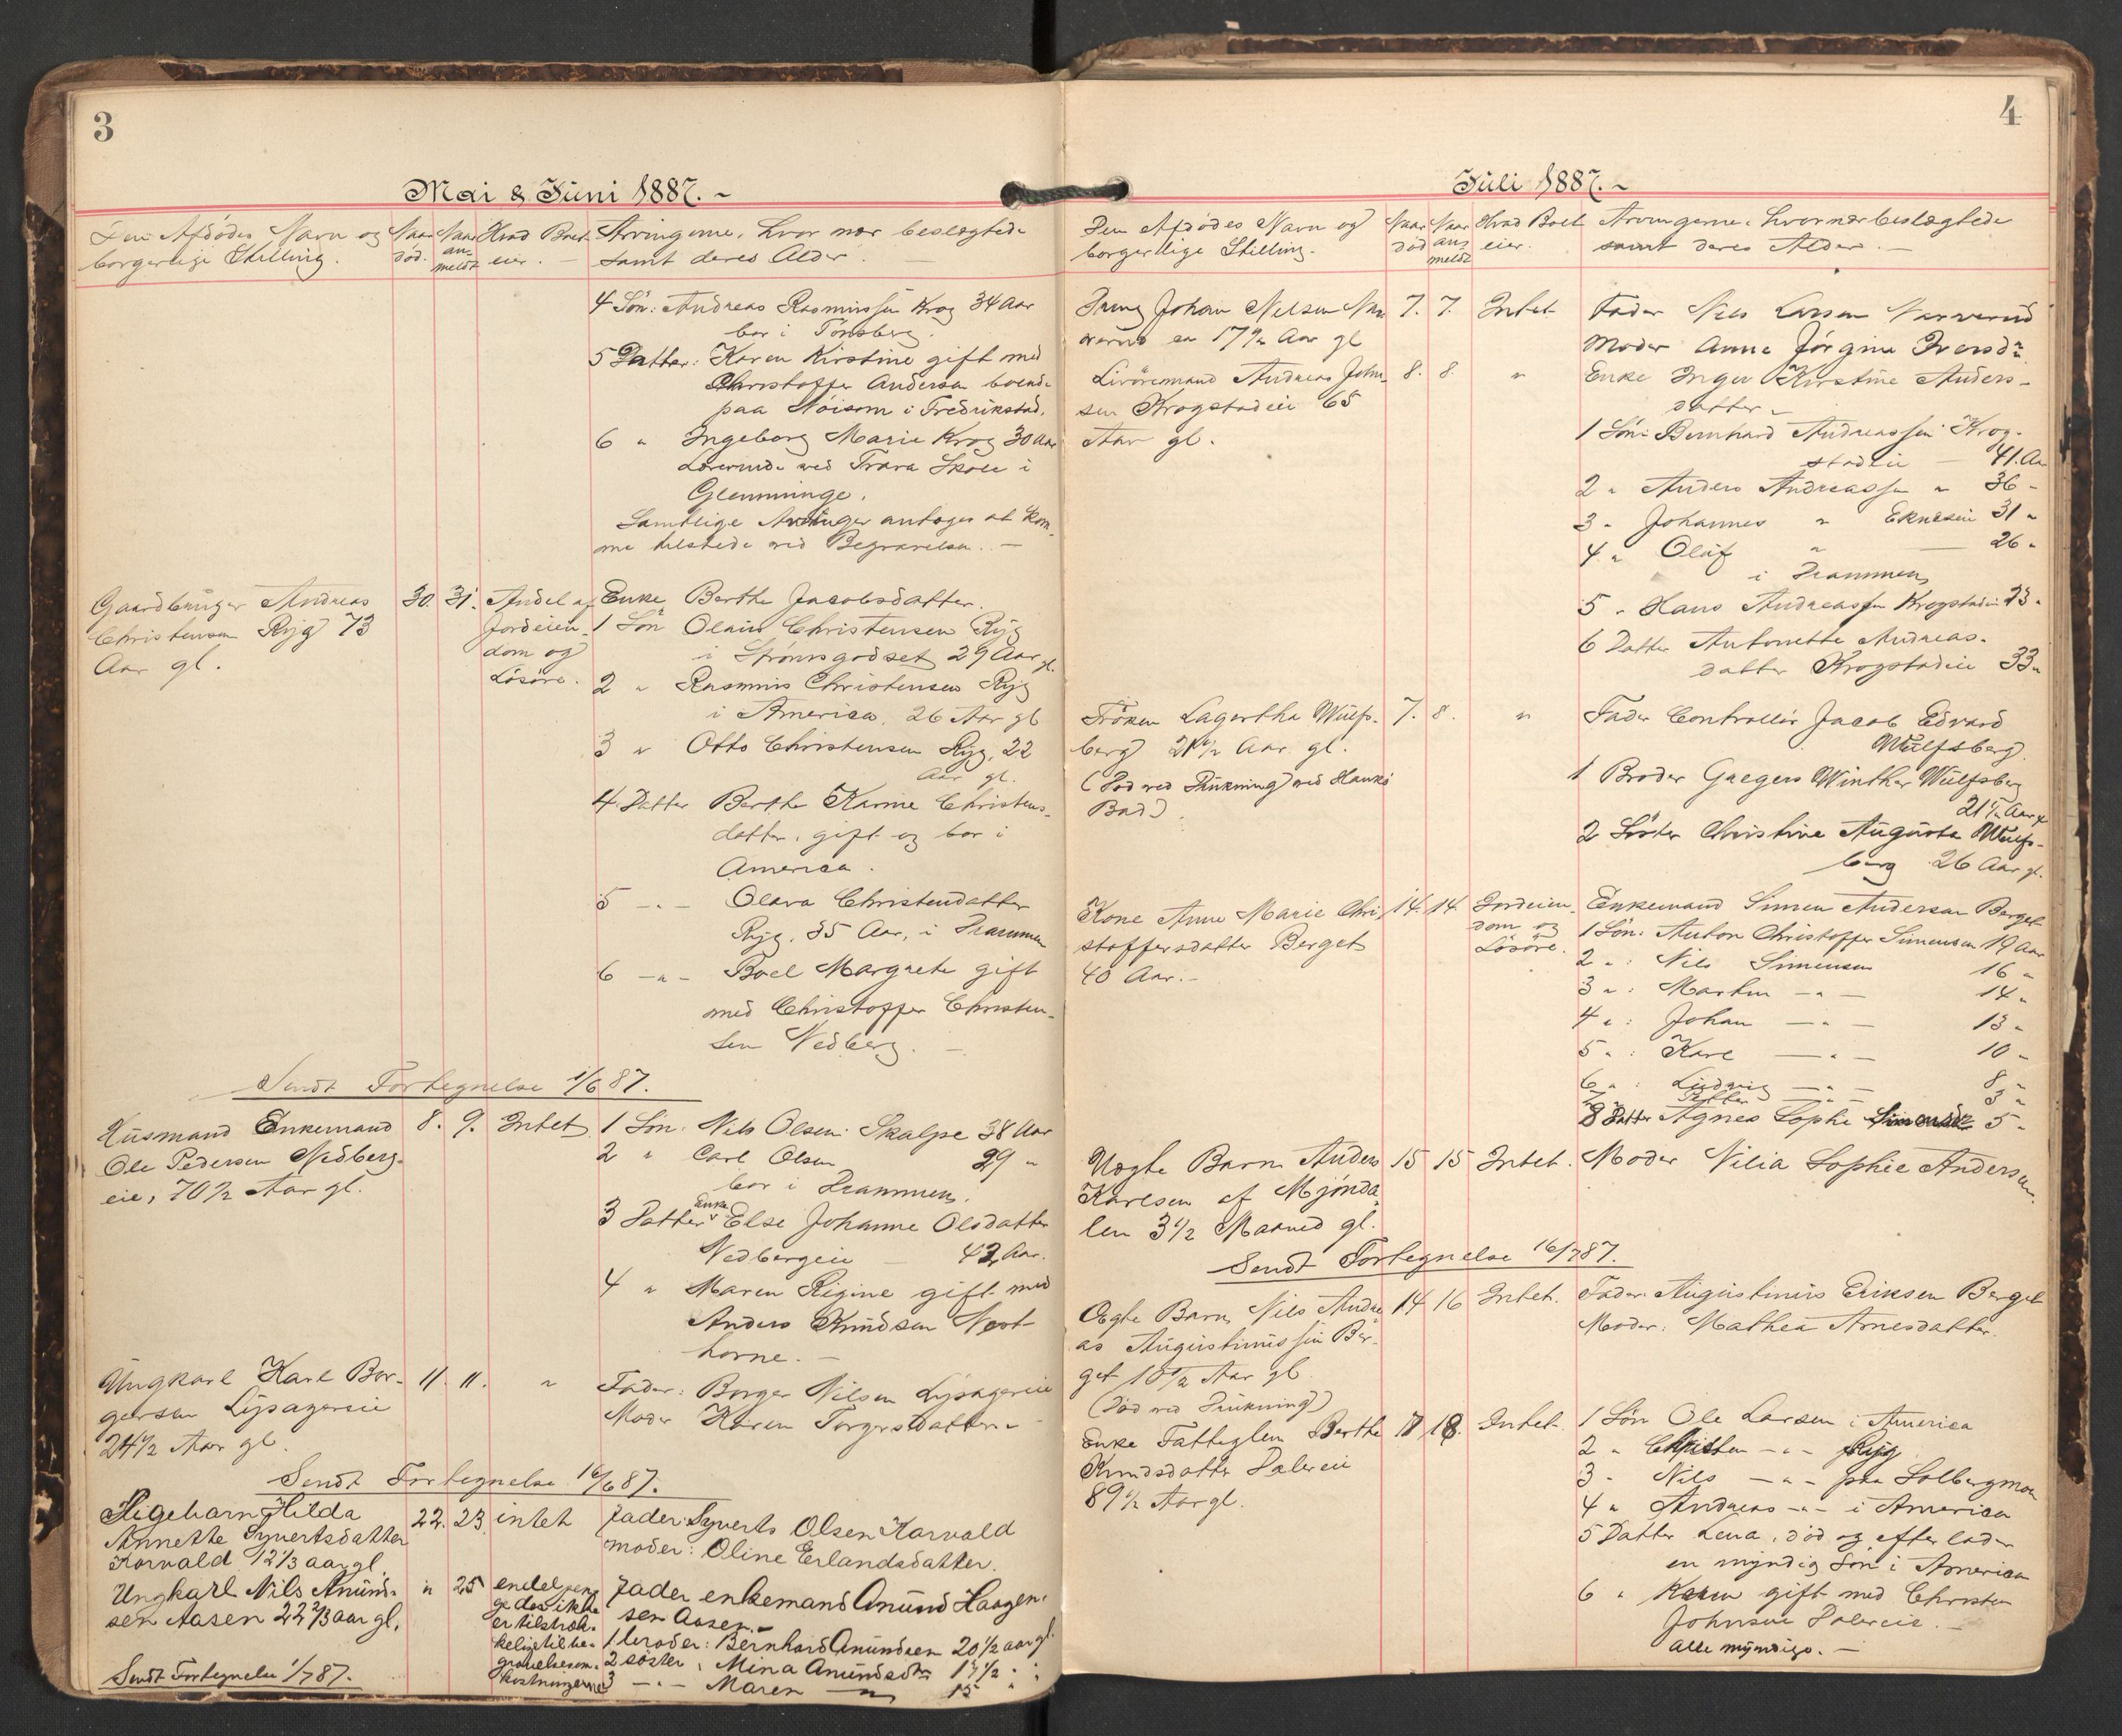 3
Mai & Juni 1887.
Den Afdødes Navn og borgerlige Stilling.
Naar død.
Naar an-meldt
Hvad Boet eier.
Arvingerne, hvor nær beslægtede samt deres Alder.
4 Søn: Andreas Rasmussen Krog 34 Aar
bor i Tønsberg.
5 Datter: Karen Kirstine gift med
Christoffer Andersen boende
paa Nøisom i Fredrikstad.
6 " Ingeborg Marie Krog 30 Aar
Lærerinde ved Trara Skole i
Glemminge.
Samtlige Arvinger antages at kom-
me tilstede ved Begravelsen. —
Gaardbruger Andreas
Christensen Ryg 73
Aar gl.
30. 31.
Andel af
Jordeien-
dom og
Løsøre.
Enke Berthe Jacobsdatter.
1 Søn Olaus Christensen Ryg
i Strømsgodset 29 Aar gl.
2 " Rasmus Christensen Ryg
i America, 26 Aar gl
3 " Otto Christensen Ryg, 22
Aar gl.
4 Datter Berthe Karine Christens-
datter, gift og bor i
America.
5 — " — Olava Christendatter
Ryg, 35 Aar, i Drammen
6 — " — Boel Margrete gift
med Christoffer Christen-
sen Nedberg. —
Sendt Fortegnelse 1/6 87.
Husmand Enkemand
Ole Pedersen Nedberg-
eie, 70 1/2 Aar gl.
8. 9. Intet
1 Søn. Nils Olsen Skalpe 38 Aar
2 " Carl Olsen 29 "
bor i Drammen.
3 Datter Enke Else Johanne Olsdatter
Nedbergeie — 42 Aar.
4 " Maren Rigine gift med
Anders Knudsen Vest-
horne. —
Ungkarl Karl Bor-
gersen Lysagereie
24 1/2 Aar gl.
11. 11. "
Fader: Borger Nilsen Lysagereie
Moder Karen Torgersdatter
Sendt Fortegnelse 16/6 87.
Pigebarn Hilda
Annette Syvertsdatter
Korvald 12 1/3 aar gl.
22. 23. intet
Fader: Syverts Olsen Korvald
moder: Oline Erlandsdatter.
Ungkarl Nils Anund-
sen Aasen 22 2/3 aar gl,
" 25
endel pen-
ge der ikke
er tilstræk-
kelige til be-
gravelsesom-
kostningerne
Fader enkemand Anund Haagen-
sen Aasen. —
1 broder: Bernhard Anundsen 20 1/2 aar gl.
2 søster, Mina Anundsdtr 17 1/2 " "
3 — " — Maren — " — 15 " "
Sendt Fortegnelse 1/7 87.
4
Juli 1887.
Den Afdødes Navn og borgerllige Stilling.
Naar død
Naar anmeldt
Hvad Boet eier.
Arvingerne, hvor nær beslægtede
samt deres Alder. —
Dreng Johan Nilsen Nar
verud ca 17 1/2 Aar gl
7. 7. Intet
Fader Nils Larsen Narverud
Moder Anne Jørgine Iversdtr
Livøremand Andreas Johan-
sen Krogstadeie 65
Aar gl.
8. 8. "
Enke Inger Kirstine Anders-
datter
1 Søn: Bernhard Andreassen Krog-
stadeie — 41. Aar
2 " Anders Andreassen " 36 "
3 " Johannes " Eknæseie 31 "
4 " Oluf " — 26 "
i Drammen
5 " Hans Andreassen Krogstadeie 23 "
6 Datter Antonette Andreas-
datter Krogstadeie 33 "
Frøken Lagertha Wulfs-
berg 21 1/2 Aar gl.
(Død ved Drukning ved Hankø
Bad).
7. 8. "
Fader Controllør Jacob Edvard
Wulfsberg
1 Broder Gregers Winther Wulfsberg
21 1/2 Aar gl
2 Søster Christine Augusta Wulfs-
berg 26 Aar gl.
Kone Anne Marie Chri-
stoffersdatter Berget
40 Aar. —
14. 14.
Jordeien-
dom og
Løsøre.
Enkemand Simen Andersen Berget
1 Søn: Anton Christoffer Simensen 19 Aar
2 " : Nils Simensen 16 "
3 " : Martin — " — 14 "
4 " : Johan — " — 13 "
5 " : Karl — " — 10 "
6 " : Ludvig — " — 8 "
7 " — " — 3 "
8 Datter Agnes Sophie 5 "
Uægte Barn Anders
Karlsen af Mjønda-
len 3 1/2 Maaned gl.
15 15 Intet.
Moder Nilia Sophie Andersen.
Sendt Fortegnelse 16/7 87.
Ægte Barn, Nils Andre-
as Augustinussen Ber-
get 10 1/2 Aar gl.
(Død ved Drukning)
14 16 Intet.
Fader: Augustinus Eriksen Berget
Moder: Mathea Arnesdatter.
Enke Fattiglem Berthe
Knudsdatter Dalereie
89 1/2 Aar gl.
17 18. Intet
1 Søn Ole Larsen i America
2 " Christen — " — Ryg
3 " Nils — " — paa Solbergmoen
4 " Andreas — " — i America
5 Datter Lena, død og efterlader
en myndig Søn i America
6 " Karen gift med Christen
Johnsen Dalereie. —
alle myndige. —